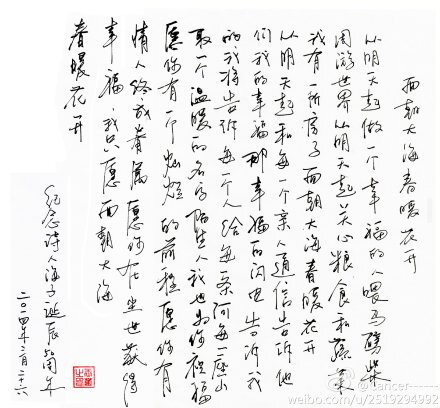 面朝大海春暖花开
从明天起做一个幸福的人喂马劈柴
周游世界从明天起关心粮食和蔬菜
我有一所房子面朝大海春暖花开
从明天起和每一个亲人通信告诉他
们我的幸福那幸福的闪电告诉我
的我将告诉每一个人给每一条河每一座山
取一个温暖的名字陌生人我也为你祝福
愿你有一个灿烂的前程愿你有
情人终成眷属愿你在尘世获得
幸福我只愿面朝大海
春暖花开
纪念诗人海子诞辰50周年
二〇一四年三月二十六
@Lancer-------
weibo.com/u/2519294992